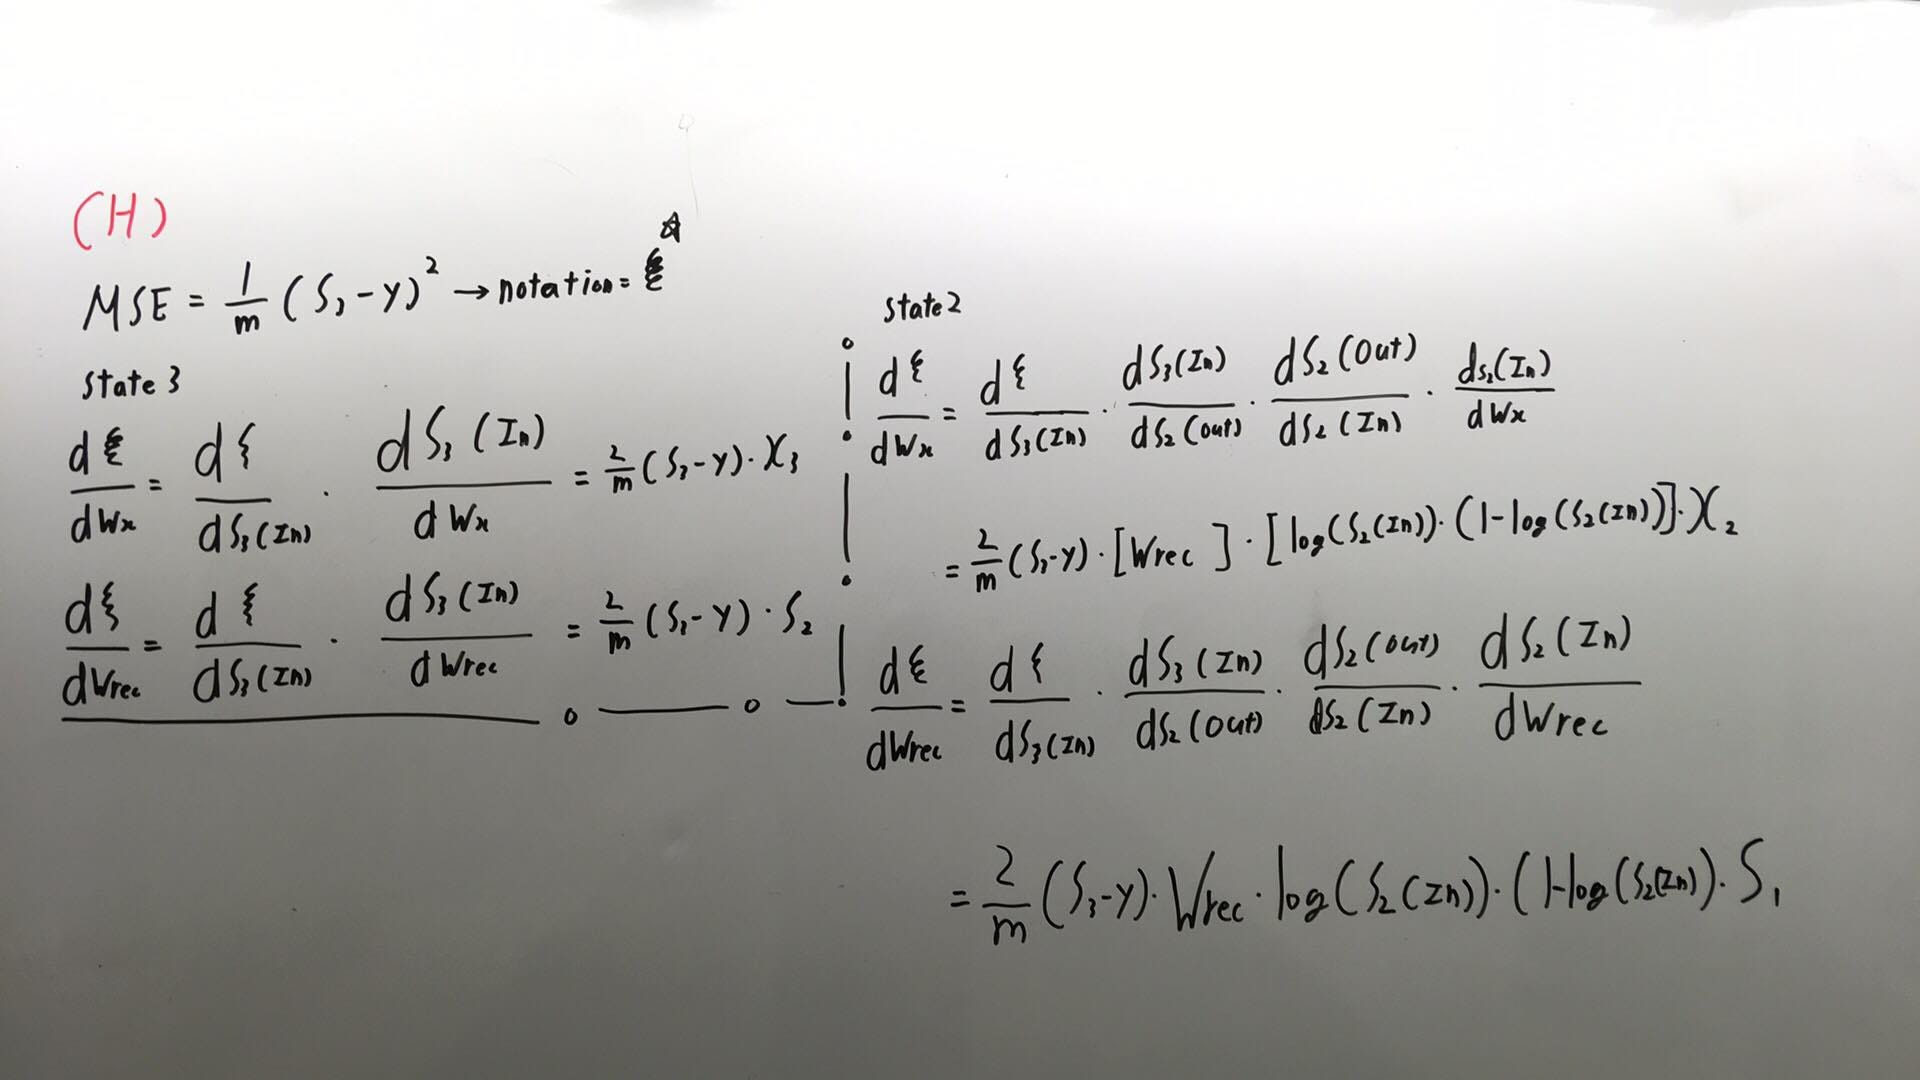 (H)
MSE = 1/m (S₃ - y)² → notation = ξ ☆
state 3
dξ/dWx = dξ/dS₃(In) · dS₃(In)/dWx = 2/m (S₃-y) · X₃
dξ/dWrec = dξ/dS₃(In) · dS₃(In)/dWrec = 2/m (S₃-y) · S₂
state 2
dξ/dWx = dξ/dS₃(In) · dS₃(In)/dS₂(out) · dS₂(out)/dS₂(In) · dS₂(In)/dWx
= 2/m (S₃-y) · [Wrec] · [log(S₂(In)) · (1-log(S₂(In))] · X₂
dξ/dWrec = dξ/dS₃(In) · dS₃(In)/dS₂(out) · dS₂(out)/dS₂(In) · dS₂(In)/dWrec
= 2/m (S₃-y) · Wrec · log(S₂(In)) · (1-log(S₂(In)) · S₁